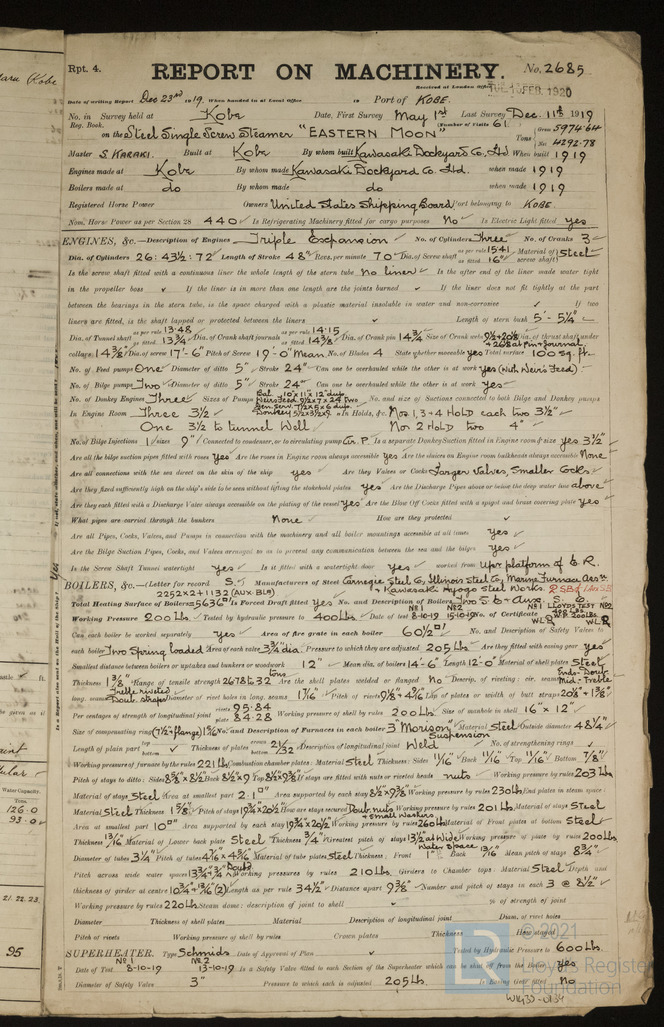 Rpt. 4. REPORT ON MACHINERY. No. 2685
Received at London Office TUE. 10 FEB. 1920
Date of writing Report Dec 23rd 1919. When handed in at Local Office 19 Port of KOBE.
No. in Survey held at Kobe Date, First Survey May 1st Last Survey Dec. 11th 1919
Reg. Book. (Number of Visits 61
on the Steel Single Screw Steamer "EASTERN MOON" Tons Gross 5974.64 Net 4292.78
Master S. KARAKI. Built at Kobe By whom built Kawasaki Dockyard Co., Ltd. When built 1919
Engines made at Kobe By whom made Kawasaki Dockyard Co. Ltd. when made 1919
Boilers made at do By whom made do when made 1919
Registered Horse Power Owners United States Shipping Board Port belonging to KOBE.
Nom. Horse Power as per Section 28 440 Is Refrigerating Machinery fitted for cargo purposes No Is Electric Light fitted yes
ENGINES, &c.—Description of Engines Triple Expansion No. of Cylinders Three No. of Cranks 3
Dia. of Cylinders 26: 43½: 72 Length of Stroke 48" Revs. per minute 70 Dia. of Screw shaft as per rule 15.41 as fitted 16" Material of screw shaft Steel
Is the screw shaft fitted with a continuous liner the whole length of the stern tube No liner Is the after end of the liner made water tight
in the propeller boss If the liner is in more than one length are the joints burned If the liner does not fit tightly at the part
between the bearings in the stern tube, is the space charged with a plastic material insoluble in water and non-corrosive If two
liners are fitted, is the shaft lapped or protected between the liners Length of stern bush 5'- 5¼"
Dia. of Tunnel shaft as per rule 13.48 as fitted 13¾ Dia. of Crank shaft journals as per rule 14.15 as fitted 14⅜ Dia. of Crank pin 14¾ Size of Crank webs Dia. of thrust shaft under
collars 14⅜ Dia. of screw 17'- 6" Pitch of Screw 19'- 0" Mean No. of Blades 4 State whether moveable yes Total surface 100 sq. ft.
No. of Feed pumps One Diameter of ditto 5" Stroke 24" Can one be overhauled while the other is at work yes (With Weir's Feed)
No. of Bilge pumps Two Diameter of ditto 5" Stroke 24" Can one be overhauled while the other is at work yes
No. of Donkey Engines Three Sizes of Pumps No. and size of Suctions connected to both Bilge and Donkey pumps
In Engine Room Three 3½ In Holds, &c. Nos 1, 3 + 4 Hold each two 3½"
One 3½ to tunnel Well No 2 Hold two 4"
No. of Bilge Injections 1 sizes 9" Connected to condenser, or to circulating pump C. P. Is a separate Donkey Suction fitted in Engine room & size yes 3½"
Are all the bilge suction pipes fitted with roses yes Are the roses in Engine room always accessible yes Are the sluices on Engine room bulkheads always accessible None
Are all connections with the sea direct on the skin of the ship yes Are they Valves or Cocks Larger Valves, Smaller Cocks
Are they fixed sufficiently high on the ship's side to be seen without lifting the stokehold plates yes Are the Discharge Pipes above or below the deep water line above
Are they each fitted with a Discharge Valve always accessible on the plating of the vessel yes Are the Blow Off Cocks fitted with a spigot and brass covering plate yes
What pipes are carried through the bunkers None How are they protected
Are all Pipes, Cocks, Valves, and Pumps in connection with the machinery and all boiler mountings accessible at all times yes
Are the Bilge Suction Pipes, Cocks, and Valves arranged so as to prevent any communication between the sea and the bilges yes
Is the Screw Shaft Tunnel watertight yes Is it fitted with a watertight door yes worked from Upr platform of E. R.
BOILERS, &c.—(Letter for record S.) Manufacturers of Steel Carnegie Steel Co, Illinois Steel Co,
+ Kawasaki Hyogo Steel Works.
2252x2+1132 (Aux. Blr)
Total Heating Surface of Boilers 5636 Is Forced Draft fitted yes No. and Description of Boilers
Working Pressure 200 Lbs Tested by hydraulic pressure to 400 Lbs Date of test No 1 8-10-19 No 2 15-10-19 No. of Certificate LLOYDS TEST
Can each boiler be worked separately yes Area of fire grate in each boiler 60½ No. and Description of Safety Valves to
each boiler Two Spring loaded Area of each valve 3¾ dia. Pressure to which they are adjusted 205 Lbs. Are they fitted with easing gear yes
Smallest distance between boilers or uptakes and bunkers or woodwork 12" Mean dia. of boilers 14'-6" Length 12'-0" Material of shell plates Steel
Thickness 1⅜ Range of tensile strength Are the shell plates welded or flanged No Descrip. of riveting: cir. seams
long. seams Diameter of rivet holes in long. seams 1 7/16 Pitch of rivets Lap of plates or width of butt straps
Per centages of strength of longitudinal joint rivets 95.84 plate 84.28 Working pressure of shell by rules 200 Lbs Size of manhole in shell 16" x 12"
Size of compensating ring No. and Description of Furnaces in each boiler 3 Morison Suspension Material Steel Outside diameter 48¼"
Length of plain part top bottom Thickness of plates crown bottom 21/32 Description of longitudinal joint Weld No. of strengthening rings
Working pressure of furnace by the rules 221 Lbs Combustion chamber plates: Material Steel Thickness: Sides 11/16 Back 11/16 Top 11/16 Bottom 7/8"
Pitch of stays to ditto: Sides Back 8½x9 Top If stays are fitted with nuts or riveted heads nuts Working pressure by rules 203 Lbs
Material of stays Steel Area at smallest part 2.10 Area supported by each stay Working pressure by rules 230 Lbs End plates in steam space:
Material Steel Thickness Pitch of stays How are stays secured Doub nuts + small washers Working pressure by rules 201 Lbs Material of stays Steel
Area at smallest part Area supported by each stay Working pressure by rules 260 Lbs Material of Front plates at bottom Steel
Thickness 13/16 Material of Lower back plate Steel Thickness Greatest pitch of stays Working pressure of plate by rules 200 Lbs
Diameter of tubes 3¼ Pitch of tubes Material of tube plates Steel Thickness: Front 1" Back 13/16 Mean pitch of stays
Pitch across wide water spaces Working pressures by rules 210 Lbs. Girders to Chamber tops: Material Steel Depth and
thickness of girder at centre Length as per rule 34½ Distance apart 9⅜ Number and pitch of stays in each 3 @ 8½"
Working pressure by rules 220 Lbs Steam dome: description of joint to shell % of strength of joint
Diameter Thickness of shell plates Material Description of longitudinal joint Diam. of rivet holes
Pitch of rivets Working pressure of shell by rules Crown plates Thickness How stayed
SUPERHEATER. Type Schmids Date of Approval of Plan Tested by Hydraulic Pressure to 600 Lbs.
Date of Test No 1 8-10-19 No 2 13-10-19 Is a Safety Valve fitted to each Section of the Superheater which can be shut off from the Boiler yes
Diameter of Safety Valve 3" Pressure to which each is adjusted 205 Lb. Is Easing Gear fitted No
© 2021
Lloyd's Register
Foundation
W1433-0134
Kobe
Water Capacity.
126.0
93.0
21. 22. 23.
95